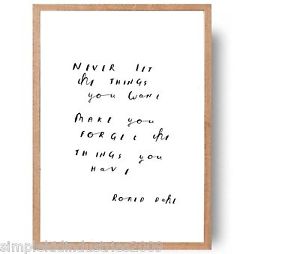 NEVER let
the THINGS
you WANt
MAKE you
FORGEt the
THINGS you
HAVE
ROALD DAHl